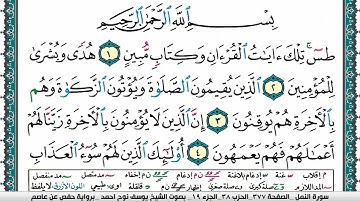 بِسْمِ اللَّهِ الرَّحْمَٰنِ الرَّحِيمِ
طسٓ ۚ تِلْكَ ءَايَٰتُ ٱلْقُرْءَانِ وَكِتَابٍ مُّبِينٍ ١ هُدًى وَبُشْرَىٰ
لِلْمُؤْمِنِينَ ٢ ٱلَّذِينَ يُقِيمُونَ ٱلصَّلَوٰةَ وَيُؤْتُونَ ٱلزَّكَوٰةَ وَهُم
بِٱلْءَاخِرَةِ هُمْ يُوقِنُونَ ٣ إِنَّ ٱلَّذِينَ لَا يُؤْمِنُونَ بِٱلْءَاخِرَةِ زَيَّنَّا لَهُمْ
أَعْمَٰلَهُمْ فَهُمْ يَعْمَهُونَ ٤ أُو۟لَٰٓئِكَ ٱلَّذِينَ لَهُمْ سُوٓءُ ٱلْعَذَابِ
سورة النمل الصفحة ٣٧٧ الحزب ٣٨ الجزء ١٩ بصوت الشيخ يوسف نوح احمد برواية حفص عن عاصم